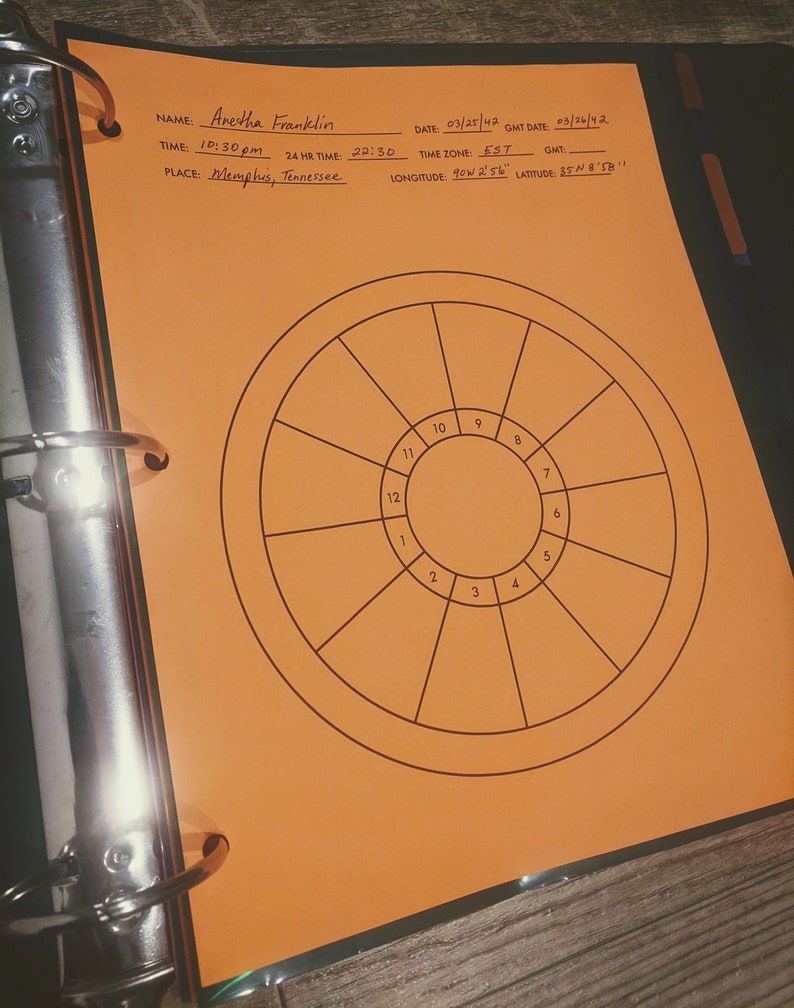 NAME: Aretha Franklin DATE: 03/25/42 GMT DATE: 03/26/42
TIME: 10:30pm 24 HR TIME: 22:30 TIME ZONE: EST GMT:
PLACE: Memphis, Tennessee LONGITUDE: 90W 2'56" LATITUDE: 35N 8'58"
9
10
8
11
7
12
6
1
5
2
4
3